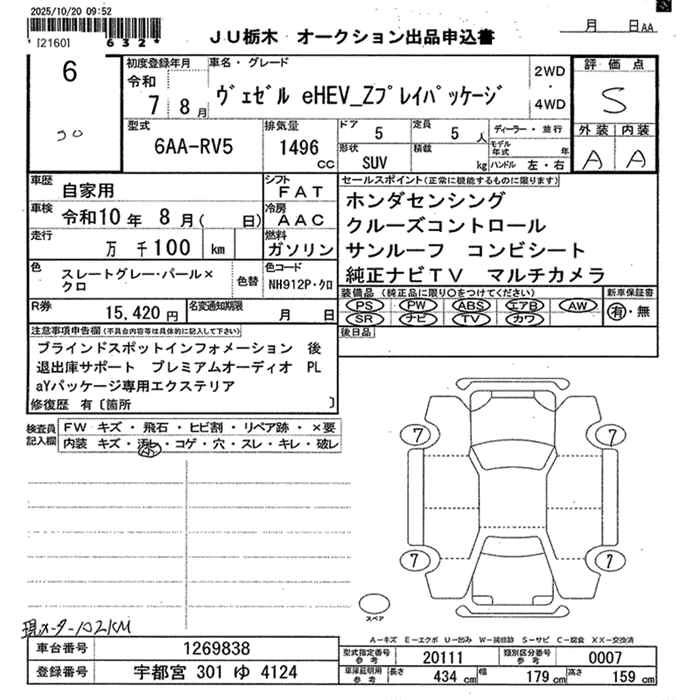 2025/10/20 09:52
* 121601 632 *
月 日 AA
JU栃木 オークション出品申込書
6
初度登録年月
令和
7 8月
車名・グレード
ヴェゼル eHEV_Zプレイパッケージ
2WD
・
4WD
評価点
S
外装 内装
A A
型式
6AA-RV5
排気量
1496 cc
ドア 5
定員 5 人
形状 SUV
積載 kg
ディーラー・並行
モデル年式 年
ハンドル 左・右
車歴 自家用
シフト FAT
車検 令和10年 8月( 日)
冷房 AAC
走行 万 千100 km
燃料 ガソリン
色 スレートグレー・パール×クロ
色替
色コード NH912P・クロ
R券 15,420 円
名変通知期限 月 日
セールスポイント(正常に機能するものに限ります)
ホンダセンシング
クルーズコントロール
サンルーフ コンビシート
純正ナビTV マルチカメラ
装備品(純正品に限り〇をつけてください)
PS PW ABS エアB AW
SR ナビ TV カワ
新車保証書
有・無
後日品
注意事項申告欄(不具合内容等は具体的に記入して下さい)
ブラインドスポットインフォメーション 後
退出庫サポート プレミアムオーディオ PL
aYパッケージ専用エクステリア
修復歴 有〔箇所 〕
検査員記入欄
FW キズ・飛石・ヒビ割・リペア跡・×要
内装 キズ・汚れ・コゲ・穴・スレ・キレ・破レ
7 7
7 7
スペア
現メーター102KM
A-キズ E-エクボ U-凹み W-補修跡 S-サビ C-腐食 XX-交換済
車台番号 1269838
登録番号 宇都宮 301 ゆ 4124
型式指定番号 参考 20111
類別区分番号 参考 0007
車庫証明用 参考 長さ 434 cm 幅 179 cm 高さ 159 cm